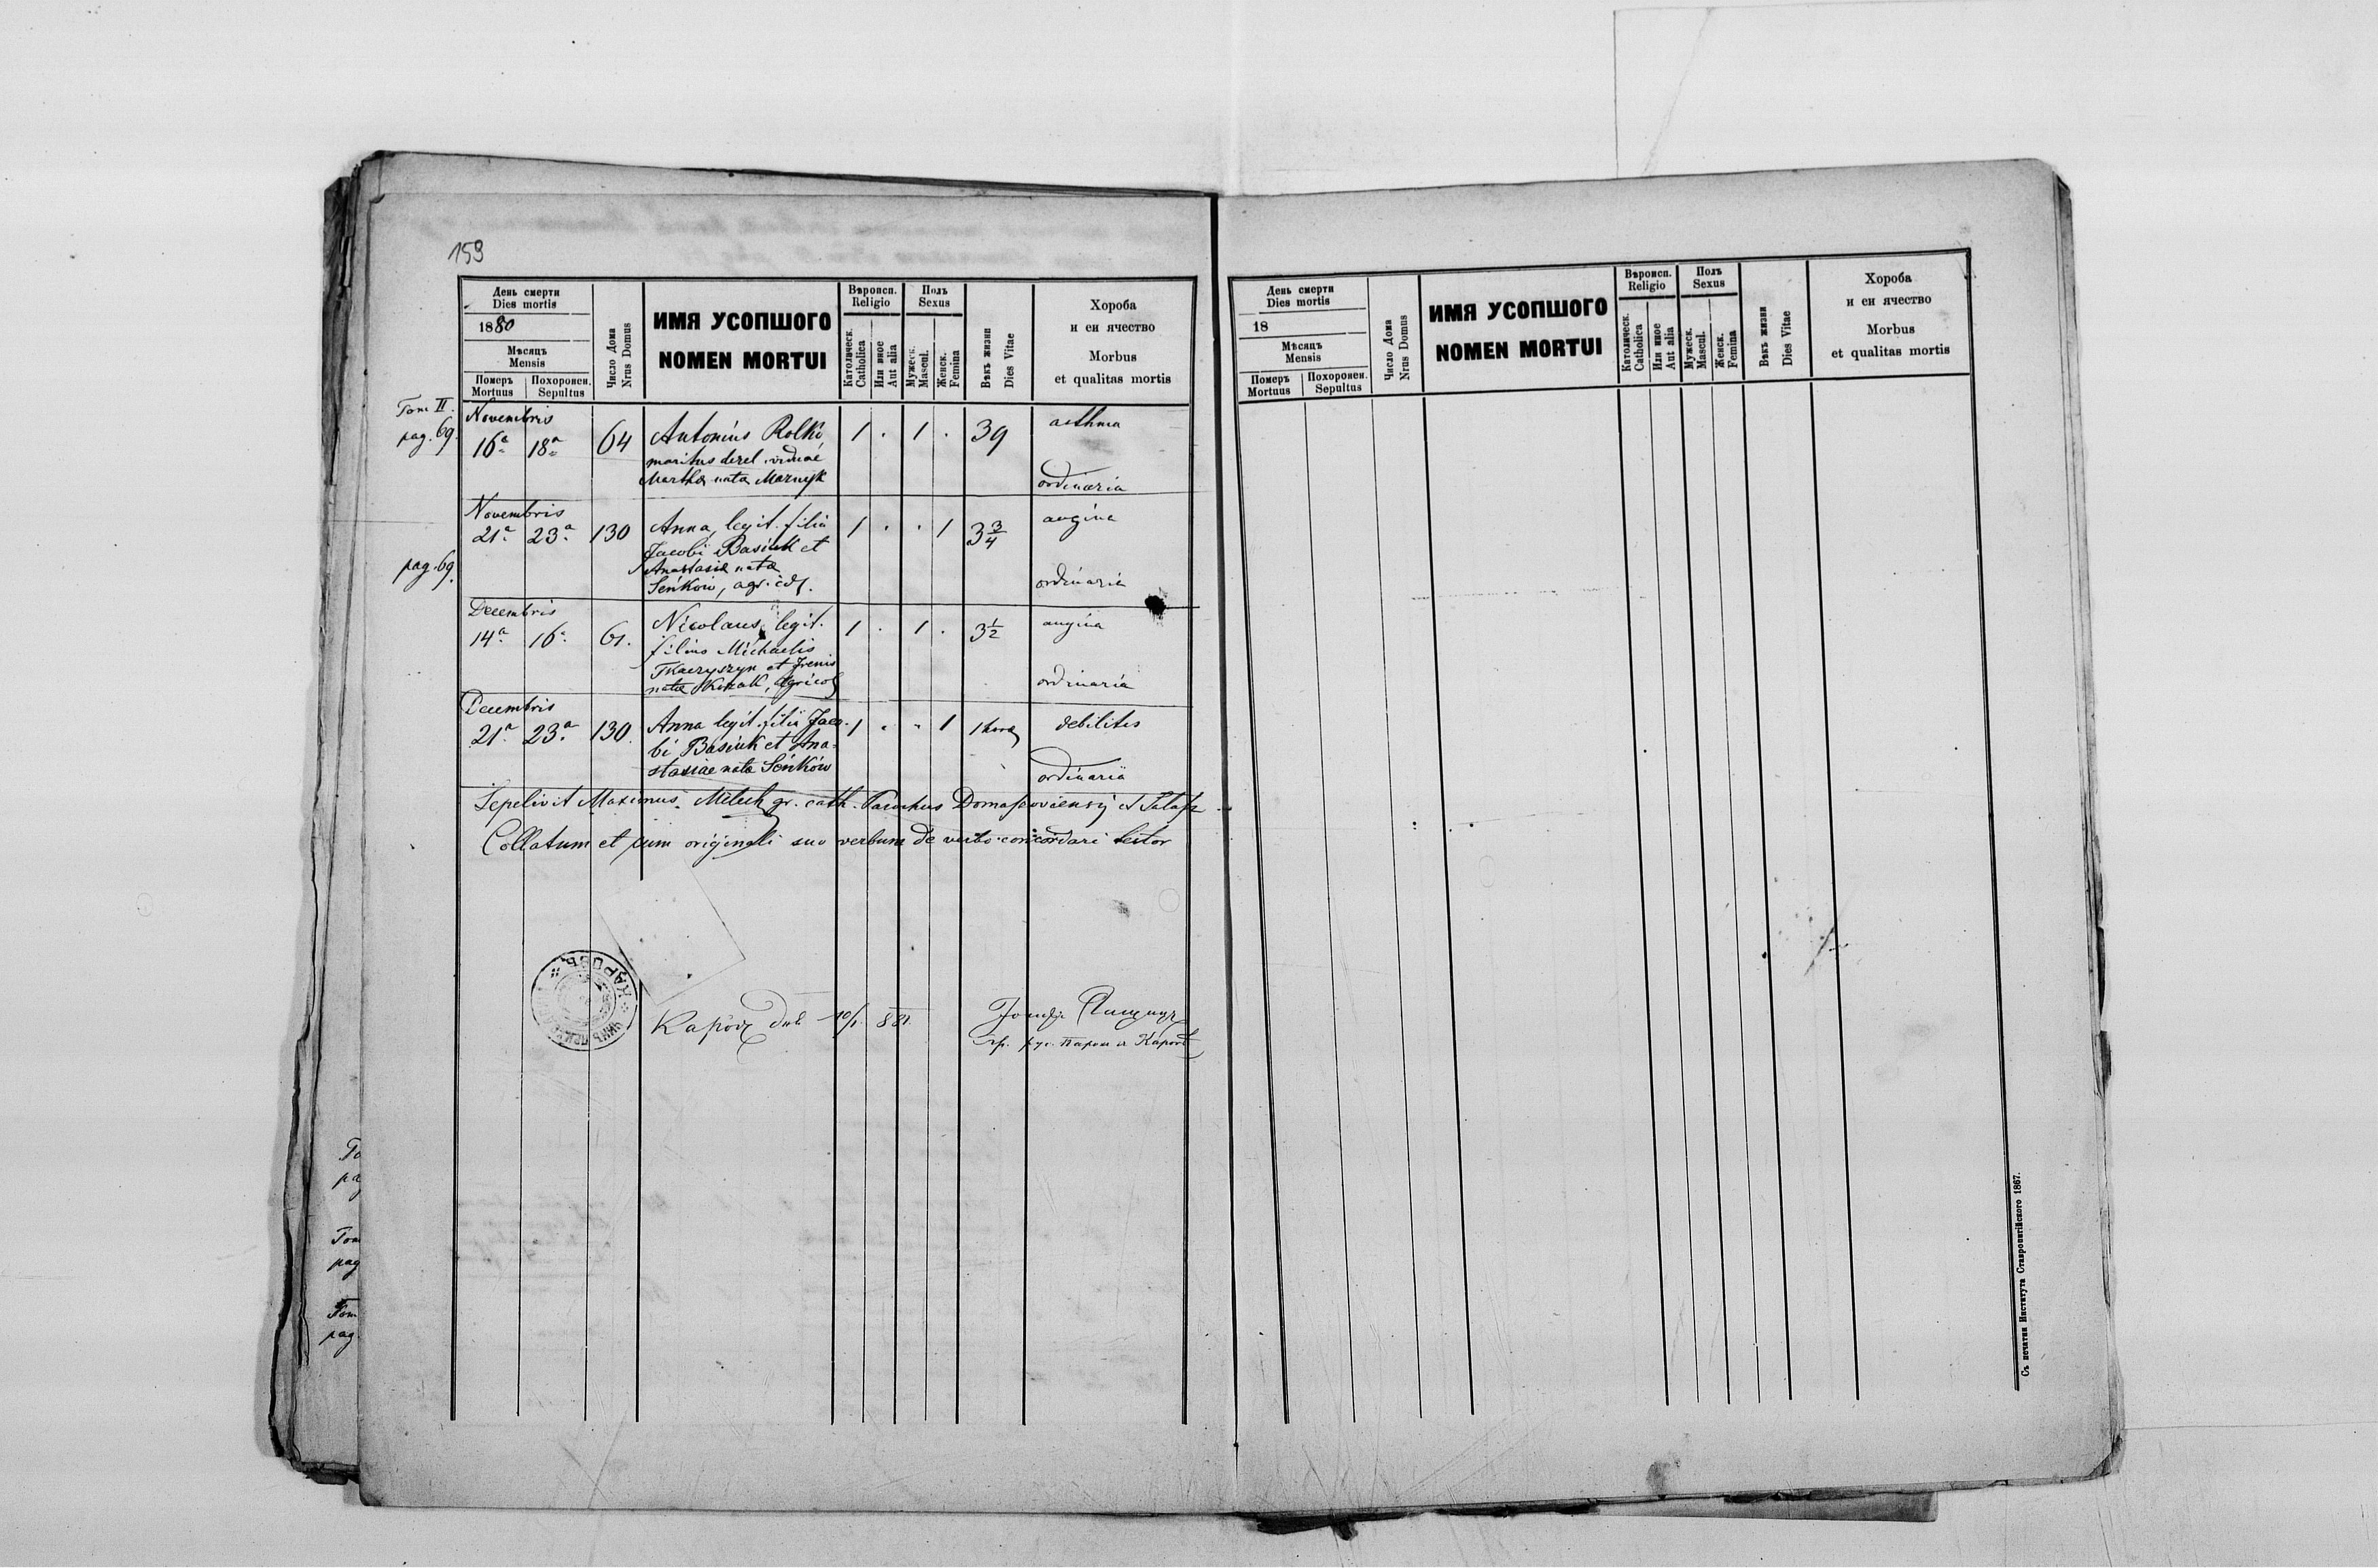 153
День смерти
Dies mortis
1880
Мѣсяцъ
Mensis
Померъ
Mortuus
Похоронен.
Sepultus
Число Дома
Nrus Domus
ИМЯ УСОПШОГО
NOMEN MORTUI
Вѣроисп.
Religio
Католическ.
Catholica
Или иное
Aut alia
Полъ
Sexus
Мужеск.
Mascul.
Женск.
Femina
Вѣкъ жизни
Dies Vitae
Хороба
и еи ячество
Morbus
et qualitas mortis
Tom II.
pag. 69.
Novembris
16a 18a 64 Antonius Rolko 1 . 1 . 39 asthma
maritus derel. viduae
Martha nata Maznyk ordinaria
Novembris
21a 23a 130 Anna, legit. filia 1 . . 1 3 3/4 angina
Jacobi Basiuk et
pag. 69.
Anastasia nata
Seńków, agricol. ordinaria
Decembris
14a 16a 61. Nicolaus, legit. 1 . 1 . 3 1/2 angina
filius Michaelis
Tkaczyszyn et Irenis
nata Kozak, agricol ordinaria
Decembris
21a 23a 130. Anna legit. filia Jaco- 1 . . 1 1 hora debilitas
bi Basiuk et Ana-
stasiae nata Seńków ordinaria
Sepelivit Maximus Meluch gr. cath. Parochus Domaszoviensis et
Collatum et cum originali suo verbum de verbo concordari testor
КАРОВЪ
Каровъ дня 10/1 881.
гр. рус. Парох въ Каровѣ
To
pa
Tom
pag
Tom
pag.
День смерти
Dies mortis
18
Мѣсяцъ
Mensis
Померъ
Mortuus
Похоронен.
Sepultus
Число Дома
Nrus Domus
ИМЯ УСОПШОГО
NOMEN MORTUI
Вѣроисп.
Religio
Католическ.
Catholica
Или иное
Aut alia
Полъ
Sexus
Мужеск.
Mascul.
Женск.
Femina
Вѣкъ жизни
Dies Vitae
Хороба
и еи ячество
Morbus
et qualitas mortis
Съ печатни Института Ставропигійского 1867.